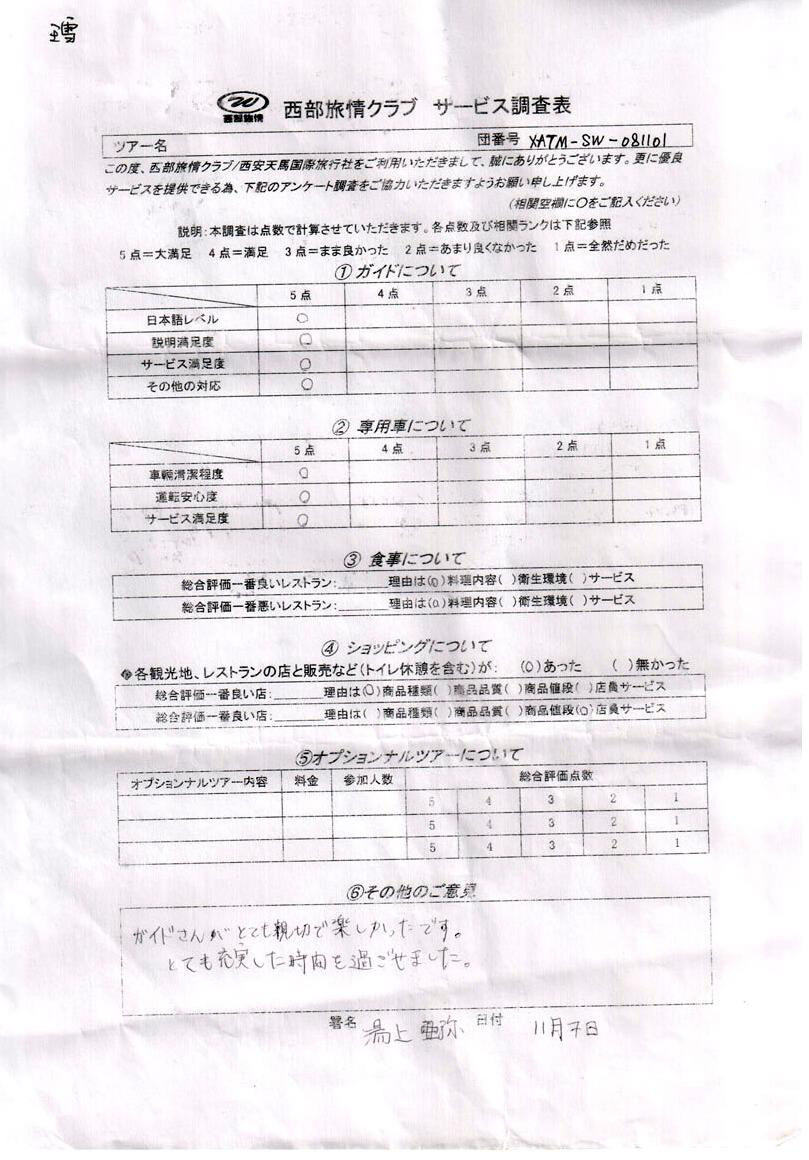 西部旅情
西部旅情クラブ サービス調査表
ツアー名 団番号 XATM-SW-081101
この度、西部旅情クラブ/西安天馬国際旅行社をご利用いただきまして、誠にありがとうございます。更に優良
サービスを提供できる為、下記のアンケート調査をご協力いただきますようお願い申し上げます。
(相関空欄に〇をご記入ください)
説明:本調査は点数で計算させていただきます。各点数及び相関ランクは下記参照
5点=大満足 4点=満足 3点=まま良かった 2点=あまり良くなかった 1点=全然だめだった
①ガイドについて
5点 4点 3点 2点 1点
日本語レベル ○
説明満足度 ○
サービス満足度 ○
その他の対応 ○
② 専用車について
5点 4点 3点 2点 1点
車輛清潔程度 ○
運転安心度 ○
サービス満足度 ○
③ 食事について
総合評価一番良いレストラン:______理由は(○)料理内容( )衛生環境( )サービス
総合評価一番悪いレストラン:______理由は(○)料理内容( )衛生環境( )サービス
④ ショッピングについて
各観光地、レストランの店と販売など(トイレ休憩を含む)が: (○)あった ( )無かった
総合評価一番良い店:______理由は(○)商品種類( )商品品質( )商品値段( )店員サービス
総合評価一番良い店:______理由は( )商品種類( )商品品質( )商品値段(○)店員サービス
⑤オプションナルツアーについて
オプションナルツアー内容 料金 参加人数 総合評価点数
5 4 3 2 1
5 4 3 2 1
5 4 3 2 1
⑥その他のご意見
ガイドさんがとても親切で楽しかったです。
とても充実した時間を過ごせました。
署名 湯上 亜弥 日付 11月7日